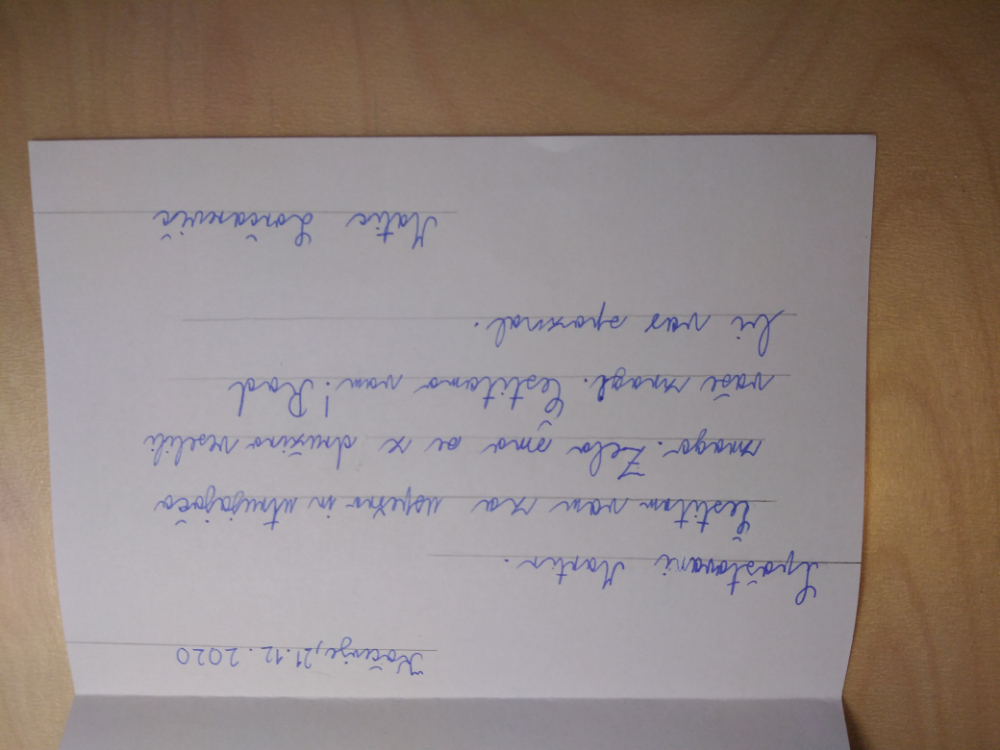 Kočevje, 21.12.2020
Spoštovani Martin.
Čestitam vam za uspešno in utrujajočo
zmago. Zelo smo se z družino veselili
vaše zmage. Čestitamo vam! Rad
bi vas spoznal.
Matic